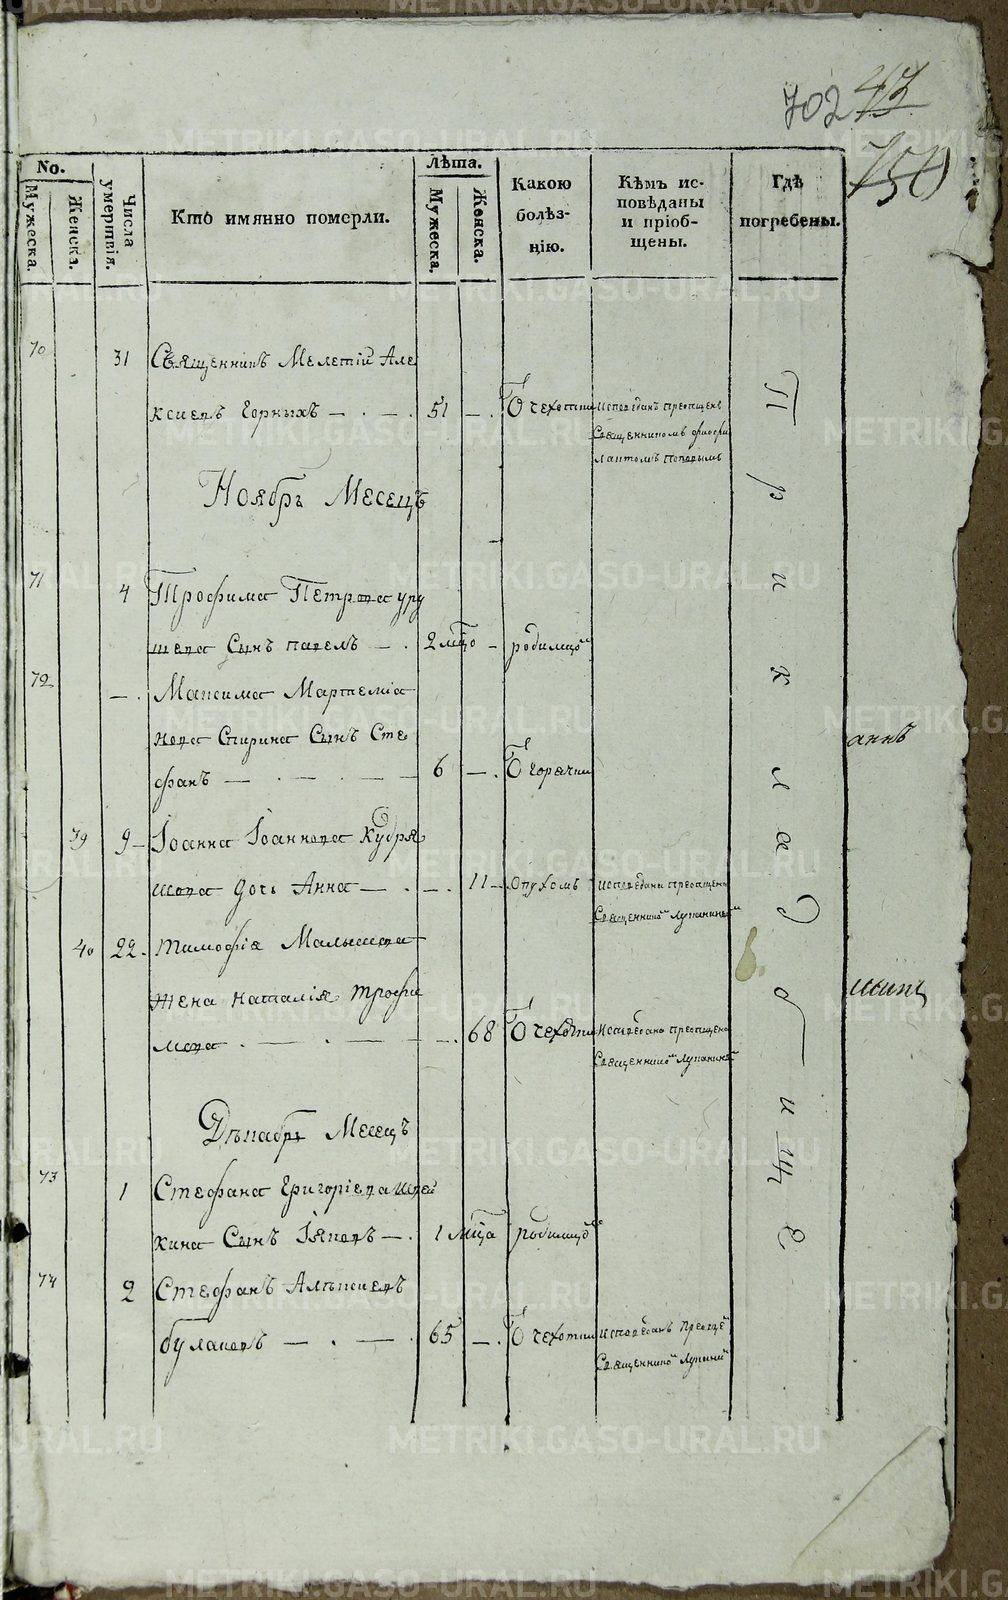 702 43
750
No. Мужеска. Женска.
Числа умертвія.
Кто имянно померли.
Лѣта. Мужеска. Женска.
Какою болѣз-нію.
Кѣмъ ис-повѣданы и пріоб-щены.
Гдѣ погребены.
70 31 Священникъ Мелетій Але
ксиевъ Горныхъ 51 Ѿ чехотки Исповеданъ преопщенъ
Священникомъ
Поповымъ
Ноябрь Месецъ
71 4 Трофима Петрова
Сынъ павелъ 2 мцо родимцо
72 Максима Мартемiа
нова Спирина Сынъ Сте
фанъ 6 Ѿ горячки
39 9 Іоанна Іоаннова Кудря
шова дочь Анна 11 опухомъ исповедана преопщена
Священнико Лупанины
40 22 Тимофія Малышева
жена наталія трофи
мова 68 Ѿ чехотки исповедана преопщена
Священнико Лупанины
Декабрь Месецъ
73 1 Стефана Григоріева
кина Сынъ Іяковъ 1 мца родимцо
74 2 Стефанъ Алексиевъ
булаковъ 65 Ѿ чехотки исповеданъ преопще
Священнико
При кладбище
аннъ
METRIKI.GASO-URAL.RU